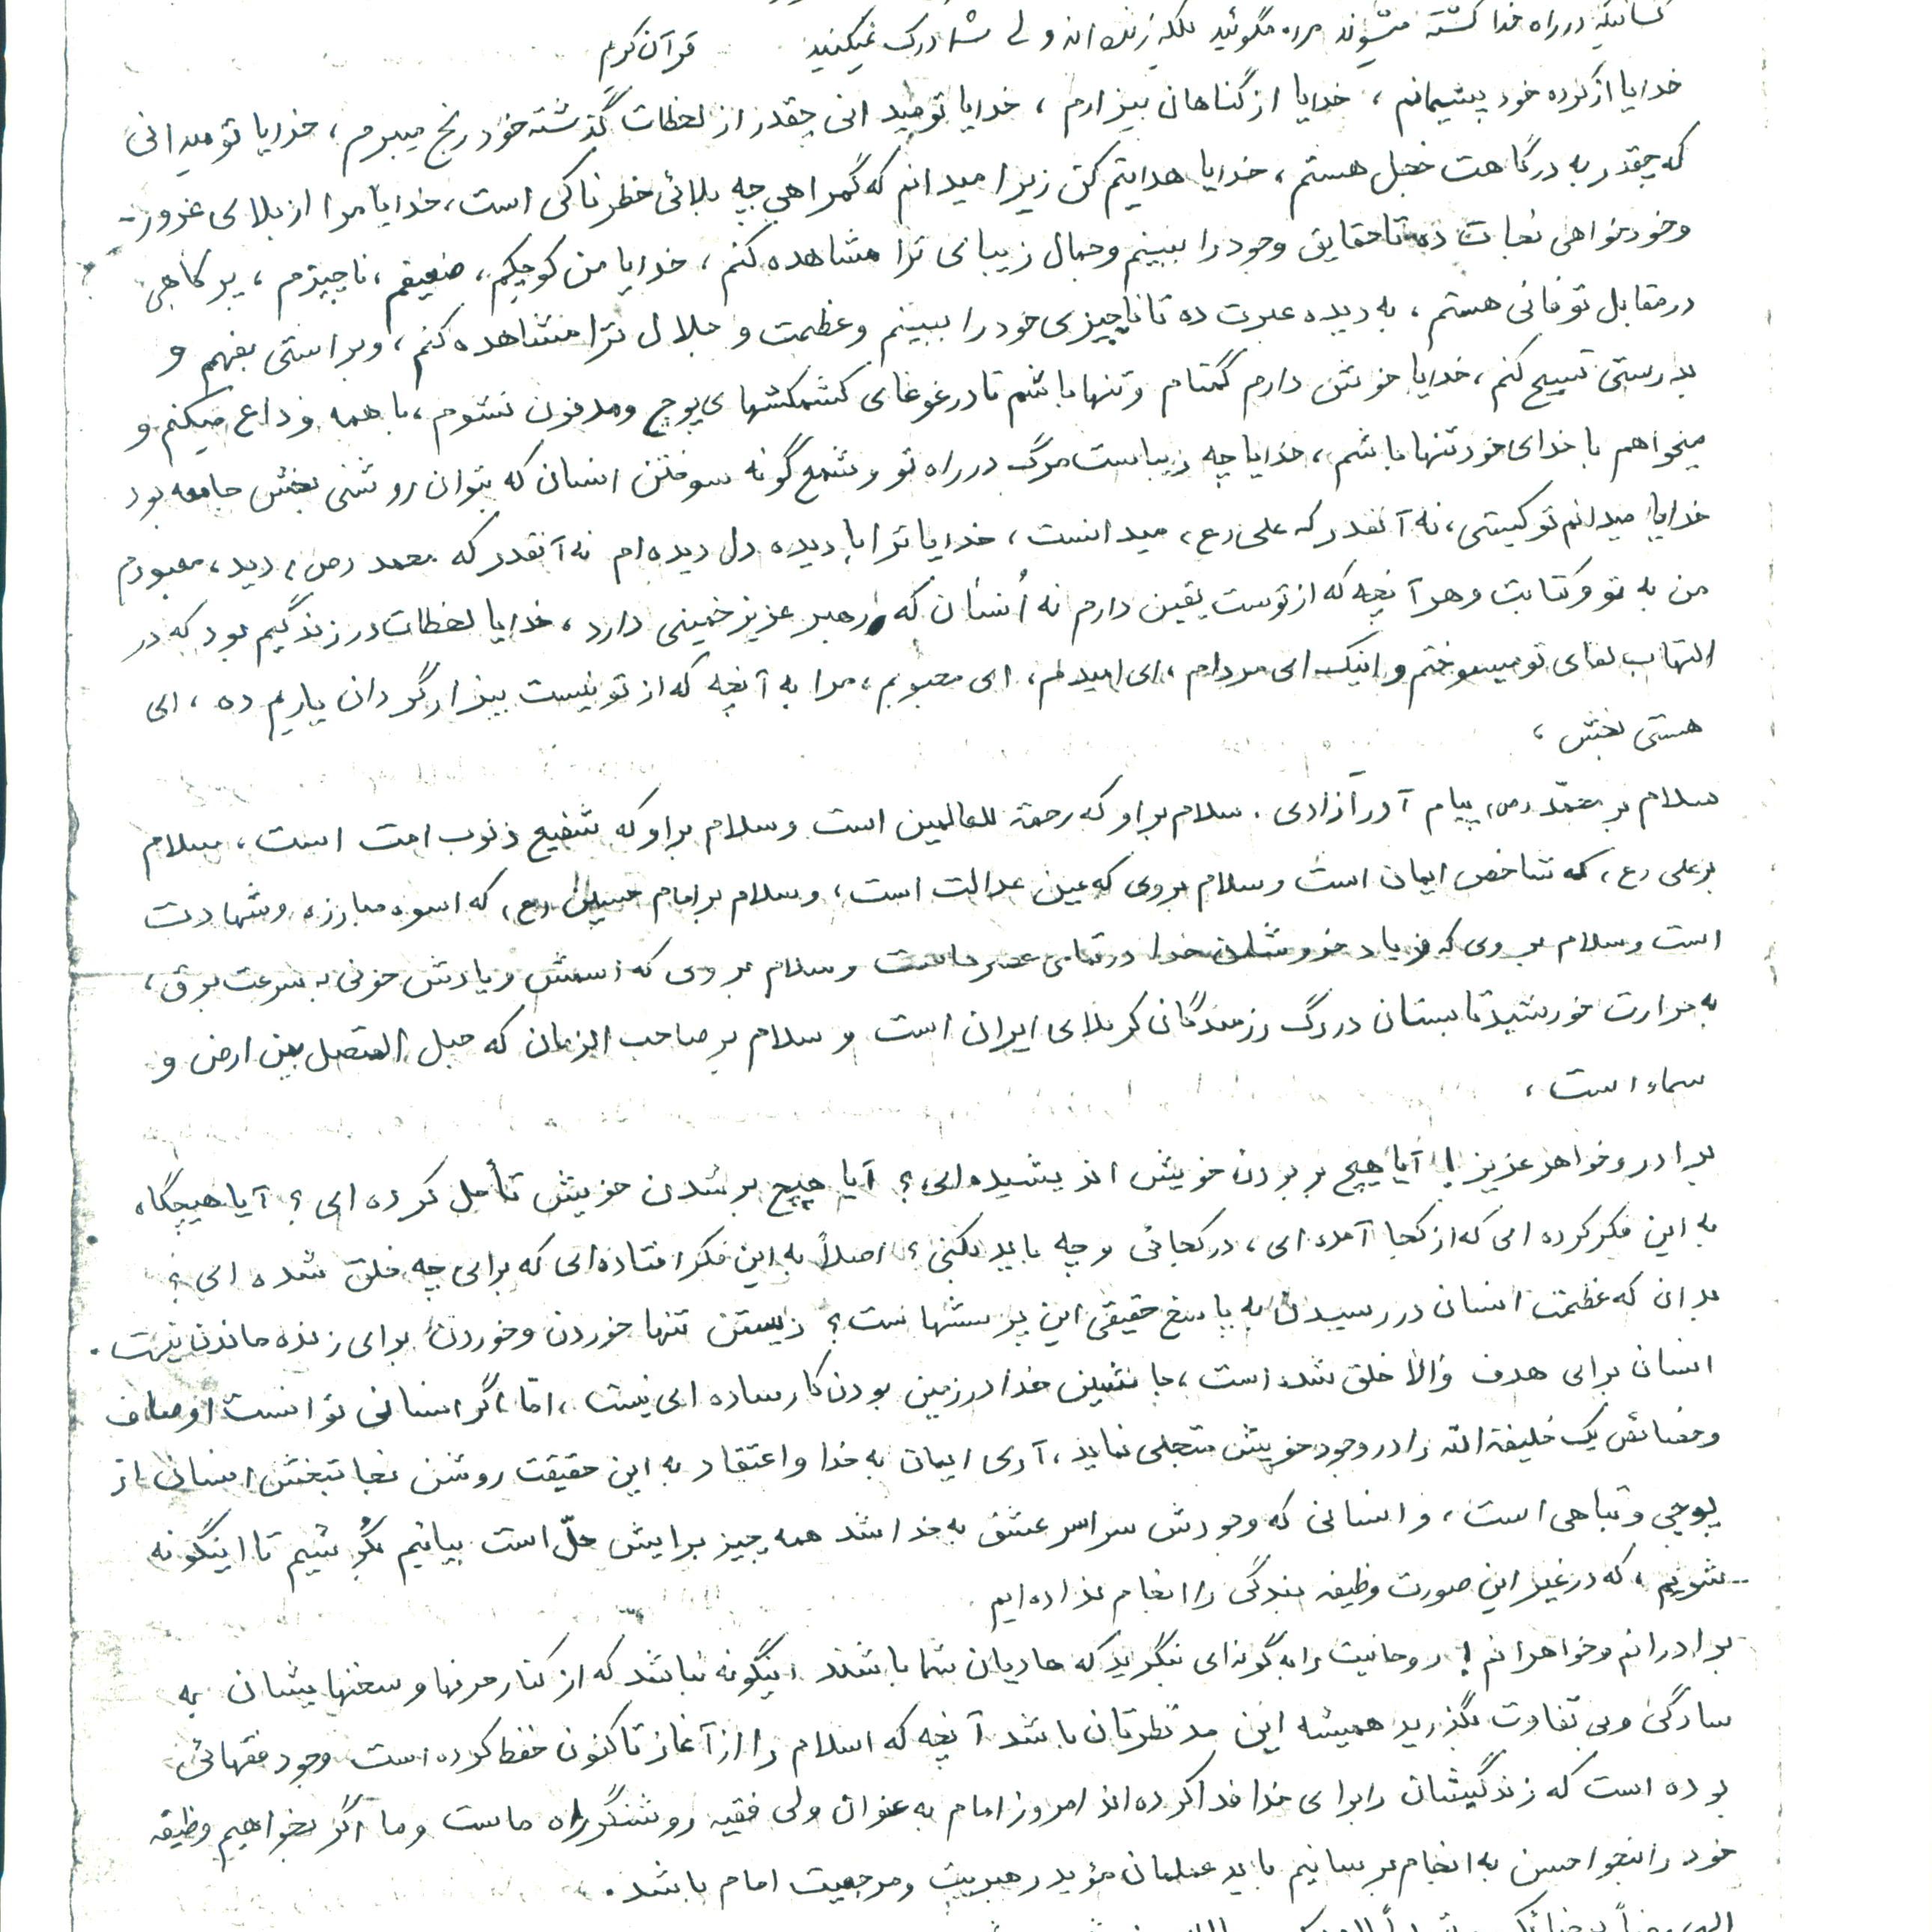 کسانیکه در راه خدا کشته میشوند مرده مگوئید بلکه زنده‌اند ولی شما درک نمیکنید قرآن کریم
خدایا از کرده خود پشیمانم ، خدایا از گناهان بیزارم ، خدایا تو میدانی چقدر از لحظات گذشته خود رنج میبرم ، خدایا تو میدانی
که چقدر به درگاهت خجل هستم ، خدایا هدایتم کن زیرا میدانم که گمراهی چه بلائی خطرناکی است ، خدایا مرا از بلای غرور -
وخودخواهی نجات ده تا حقایق وجود را ببینم وجمال زیبای ترا مشاهده کنم ، خدایا من کوچکم ، ضعیفم ، ناچیزم ، پر کاهی
در مقابل توفانی هستم ، به دیده عبرت ده تا ناچیزی خود را ببینم وعظمت و جلال ترا مشاهده کنم ، وبراستی بفهم و
بدرستی تسبیح کنم ، خدایا خوش دارم گمنام و تنها باشم تا در غوغای کشمکشهای پوچ ومدفون نشوم ، با همه وداع میکنم و
میخواهم با خدای خود تنها باشم ، خدایا چه زیباست مرگ در راه تو وشمع گونه سوختن انسان که بتوان روشنی بخش جامعه بود
خدایا میدانم تو کیستی ، نه آنقدر که علی (ع) میدانست ، خدایا ترا با دیده دل دیده‌ام نه آنقدر که محمد (ص) دید ، معبودم
من به تو وکتابت وهر آنچه که از توست یقین دارم نه اُنسان که رهبر عزیز خمینی دارد ، خدایا لحظات در زندگیم بود که در
التهاب لقای تو میسوختم و اینک ای مردام ، ای امیدم ، ای محبوبم ، مرا به آنچه که از تو نیست بیزار گردان یاریم ده ، ای
هستی بخش ،
سلام بر محمّد (ص) پیام آور آزادی . سلام بر او که رحمة للعالمین است و سلام بر او که شفیع ذنوب امت است ، سلام
بر علی (ع) که شاخص ایمان است و سلام بر وی که عین عدالت است ، و سلام بر امام حسین (ع) که اسوه مبارزه وشهادت
است و سلام بر وی که فریاد خروشان خدا در تمامی عصرهاست و سلام بر وی که اسمش ویادش خونی به سرعت برق ،
به حرارت خورشید تابستان در رگ رزمندگان کربلای ایران است و سلام بر صاحب الزمان که حبل المتصل بین ارض و
سماء است ،
برادر وخواهر عزیز ! آیا هیچ بر بودن خویش اندیشیده‌ای ؟ آیا هیچ بر شدن خویش تأمل کرده ای ؟ آیا هیچگاه
به این فکر کرده ای که از کجا آمده ای ، در کجائی و چه باید بکنی ؟ اصلاً به این فکر افتاده‌ای که برای چه خلق شده ای ؟
بدان که عظمت انسان در رسیدن به پاسخ حقیقی این پرسشهاست ؟ زیستن تنها خوردن وخوردن برای زنده ماندن نیست .
انسان برای هدف والا خلق شده است ، جانشین خدا در زمین بودن کار ساده ای نیست ، امّا اگر انسانی توانست اوصاف
وخصائص یک خلیفة الله را در وجود خویش متجلی نماید ، آری ایمان به خدا و اعتقاد به این حقیقت روشن نجاتبخش انسان از
پوچی وتباهی است ، و انسانی که وجودش سراسر عشق به خدا شد همه چیز برایش حلّ است بیائیم بکوشیم تا اینگونه
شویم ، که در غیر این صورت وظیفه بندگی را انجام نداده ایم
برادرانم وخواهرانم ! روحانیت را به گونه‌ای بنگرید که هادیان شما باشند اینگونه نباشد که از کنار حرفها و سخنهایشان به
سادگی وبی تفاوت بگذرید همیشه این مد نظرتان باشد آنچه که اسلام را از آغاز تاکنون حفظ کرده است وجود فقهائی
بوده است که زندگیشان را برای خدا فدا کرده‌اند امروز امام به عنوان ولی فقیه روشنگر راه ماست وما اگر بخواهیم وظیفه
خود را بنحو احسن به انجام برسانیم باید عملمان مؤید رهبریت ومرجعیت امام باشد .